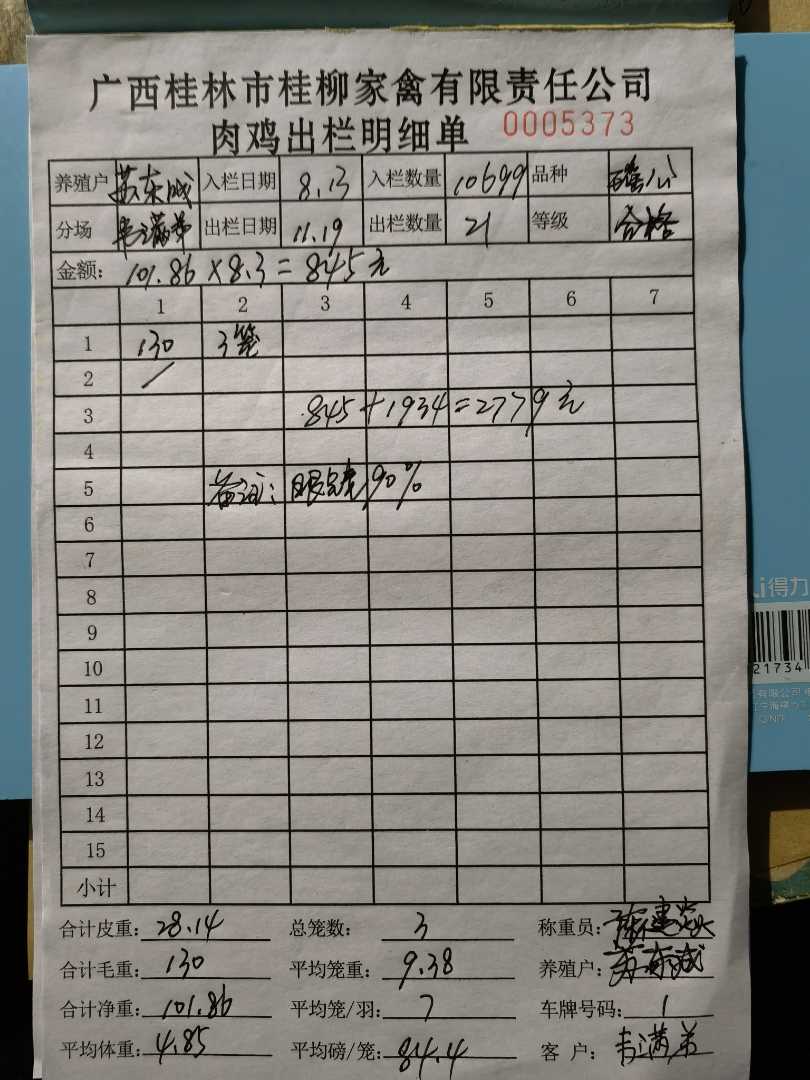 广西桂林市桂柳家禽有限责任公司
肉鸡出栏明细单 0005373
养殖户 苏东成 入栏日期 8.13 入栏数量 10699 品种
分场 韦满弟 出栏日期 11.19 出栏数量 21 等级 合格
金额: 101.86×8.3=845元
1 2 3 4 5 6 7
1 130 3笼
2
3 845+1934=2779元
4
5 备注: 90%
6
7
8
9
10
11
12
13
14
15
小计
合计皮重: 28.14 总笼数: 3 称重员:
合计毛重: 130 平均笼重: 9.38 养殖户: 苏东成
合计净重: 101.86 平均笼/羽: 7 车牌号码: 1
平均体重: 4.85 平均磅/笼: 84.4 客 户: 韦满弟
i得力
21734